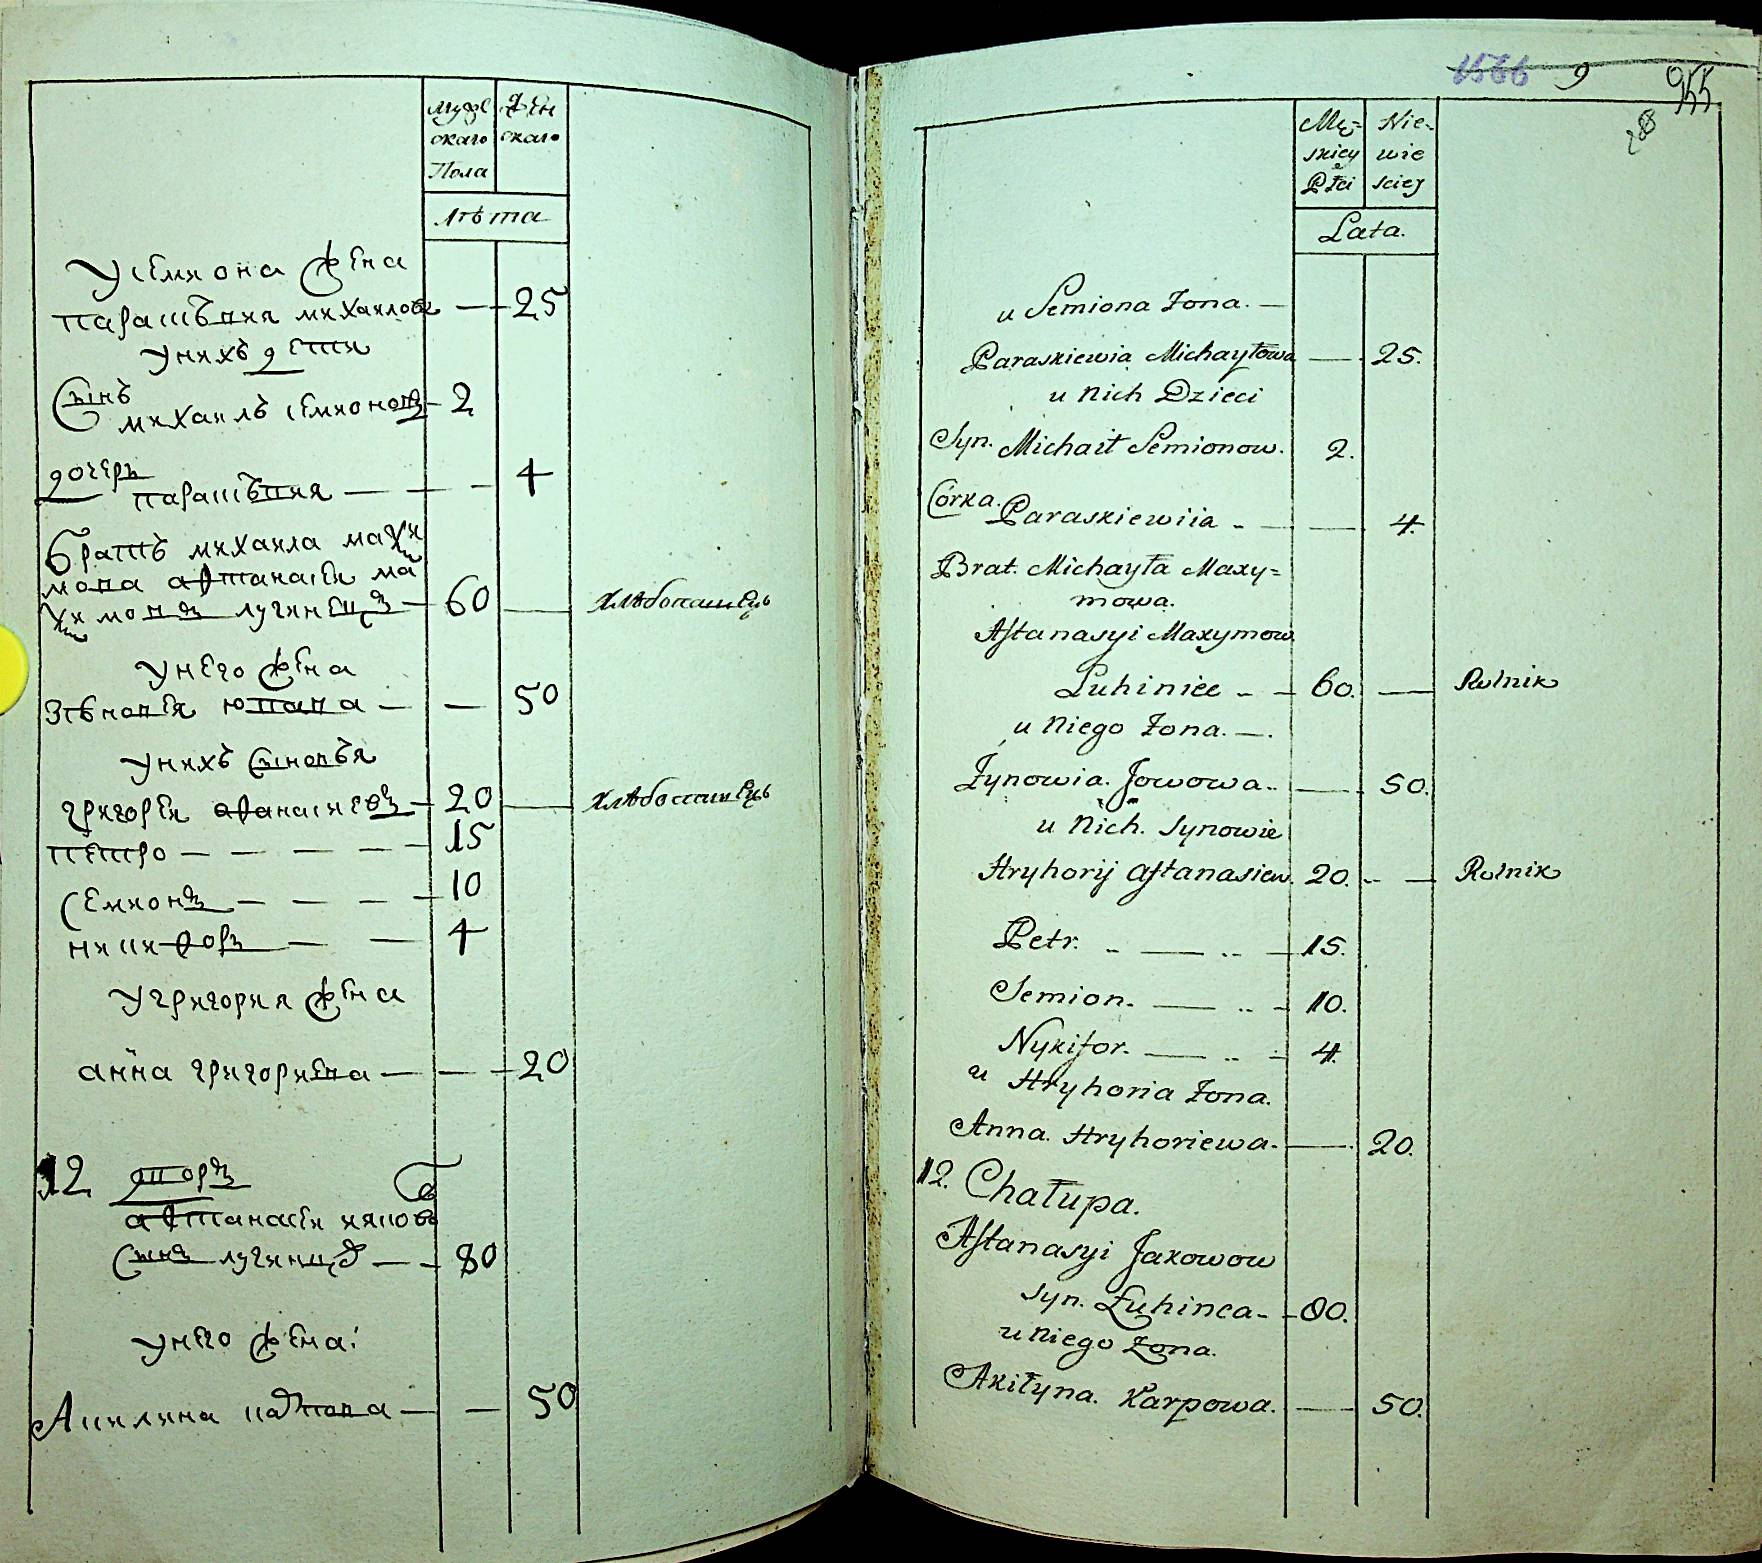 Муже
скаго
Пола
Жен
скаго
лѣта
У семиона жена
парасъвия михаилова — 25
у нихъ дети
Сынъ
михаилъ семионовъ 2
дочеръ
парасъвия — — — 4
братъ михаила макси
мова афтанасеи ма
ксимовъ лугинецъ — 60 — хлѣбопашецъ
у него жена
зѣновѣя ювова — — 50
у нихъ сыновъя
григореи афанасиевъ — 20 — хлѣбопашецъ
петро — — — — — 15
семионъ — — — — 10
никифоръ — — 4
у григория жена
анна григориева — — 20
12 дворъ
афтанасеи яковъ
сынъ лугинцъ — — 80
у него жена:
Акилина карпова — — 50
1566 9 955
Mę=
skiey
Płci
Nie=
wie
sciej
Lata.
u Semiona Żona. —
Paraskiewia Michayłowa — 25.
u nich Dzieci
Syn. Michaił Semionow. 2.
Córka. Paraskiewiia - — — 4.
Brat. Michayła Maxy=
mowa.
Aftanasyi Maxymow
Łuhiniec - — 60. — Rolnik
u niego Żona. —.
Zynowia. Jowowa. - — 50.
u Nich. Synowie
Hryhorij Aftanasiew. 20. - — Rolnik
Petr. - — .. — 15.
Semion. — .. — 10.
Nykifor. — .. — 4.
u Hryhoria Żona.
Anna. Hryhoriewa. — 20.
12. Chałupa.
Aftanasyi Jakowow
syn. Łuhinca - — 80.
u niego Żona.
Akiłyna. Karpowa. — 50.